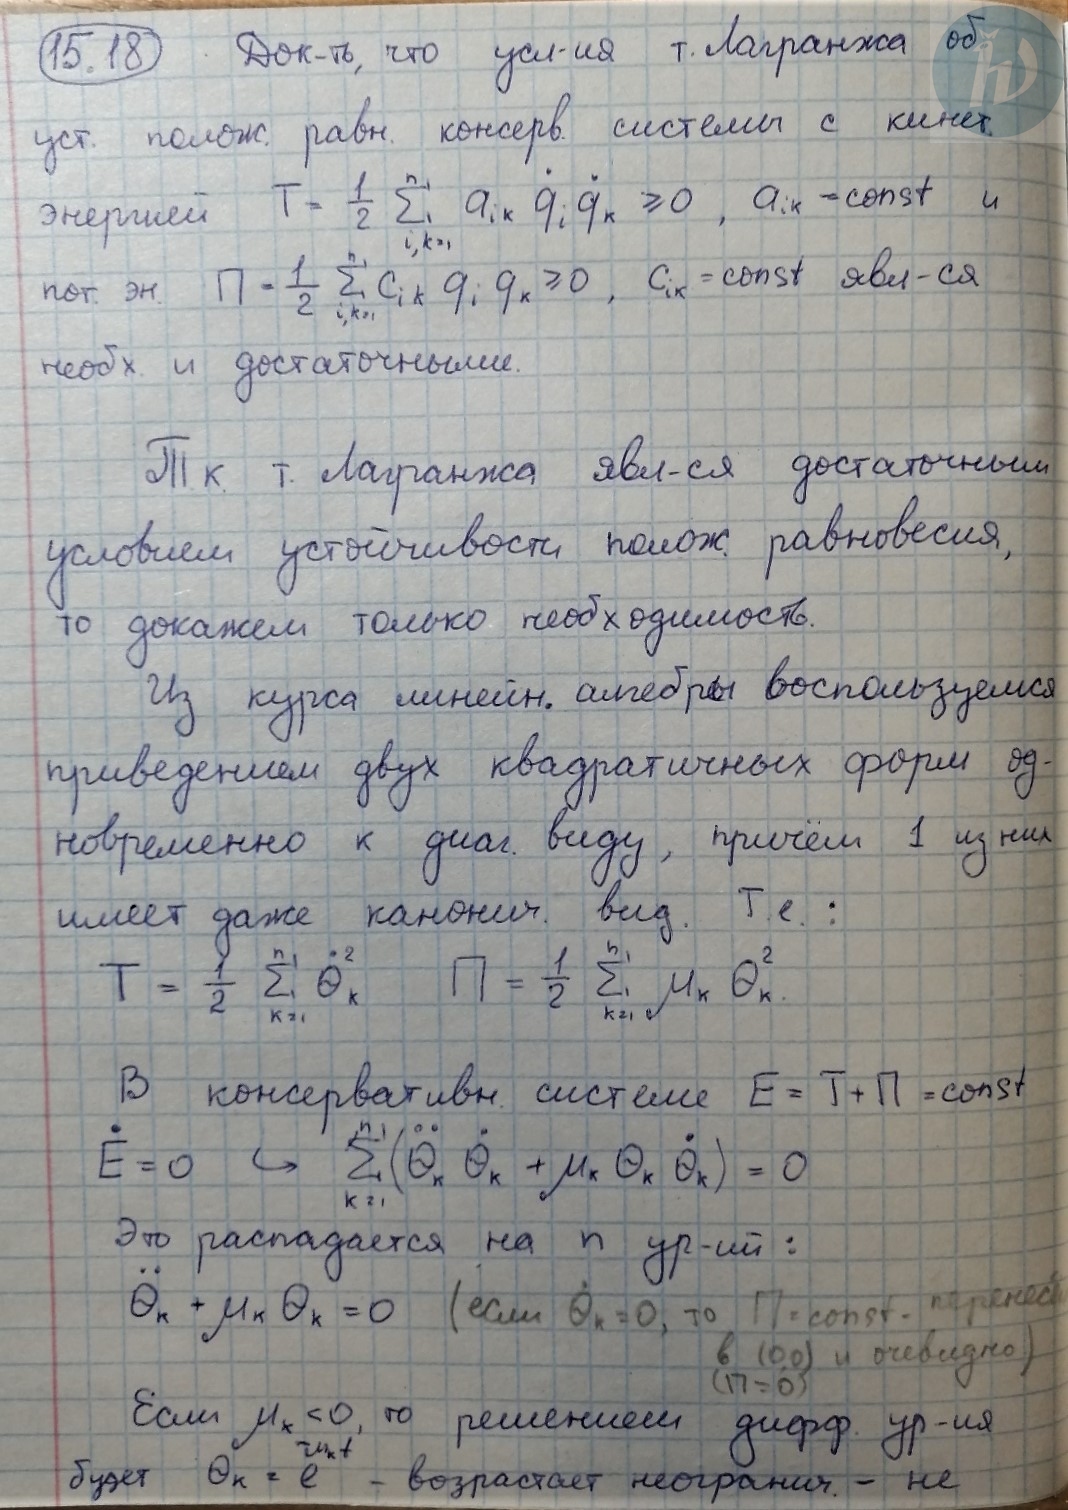 15.18 Док-ть, что усл-ия т. Лагранжа об
уст. полож. равн. консерв. системы с кинет.
энергией T = 1/2 Σ_{i,k=1}^{n} a_{ik} q̇_i q̇_k ≥ 0, a_{ik} = const и
пот. эн. П = 1/2 Σ_{i,k=1}^{n} c_{ik} q_i q_k ≥ 0, c_{ik} = const явл-ся
необх. и достаточными.
Т.к. т. Лагранжа явл-ся достаточным
условием устойчивости полож. равновесия,
то докажем только необходимость.
Из курса линейн. алгебры воспользуемся
приведением двух квадратичных форм од-
новременно к диаг. виду, причём 1 из них
имеет даже канонич. вид. Т.е.:
T = 1/2 Σ_{k=1}^{n} θ̇_k² П = 1/2 Σ_{k=1}^{n} μ_k θ_k².
В консервативн. системе E = T + П = const
Ė = 0 ↪ Σ_{k=1}^{n} (θ̈_k θ̇_k + μ_k θ_k θ̇_k) = 0
Это распадается на n ур-ий:
θ̈_k + μ_k θ_k = 0 (если θ̇_k = 0, то П = const -
в (0,0) и очевидно)
(П = 0)
Если μ_k < 0, то решением дифф. ур-ия
будет θ_k = e - возрастает неогранич. - не